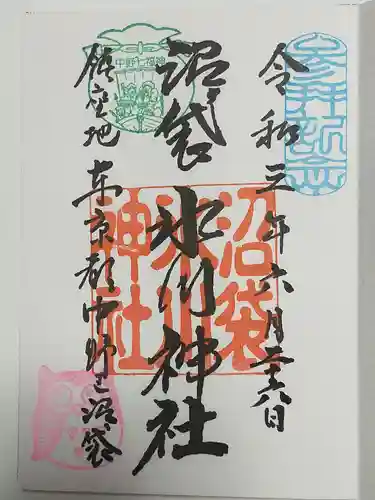 令和三年六月二十六日
参拝記念
沼袋
氷川神社
沼袋
氷川
神社
鎮座地 東京都中野区沼袋